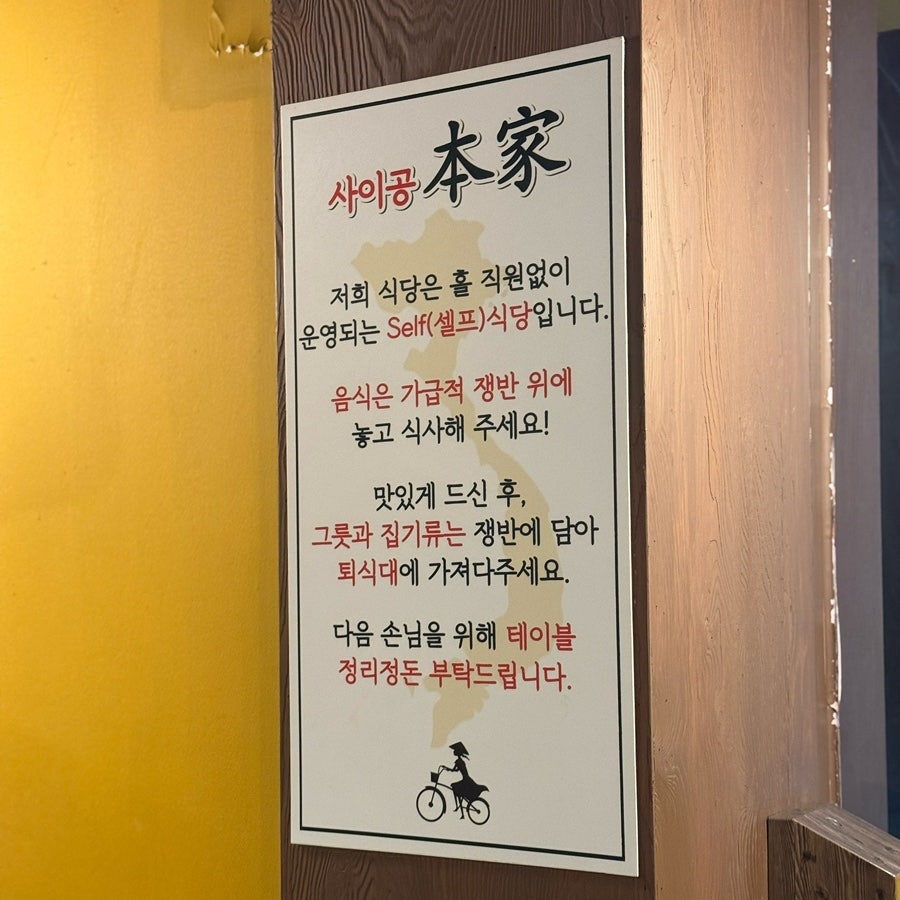 사이공 本家
저희 식당은 홀 직원없이
운영되는 Self(셀프)식당입니다.
음식은 가급적 쟁반 위에
놓고 식사해 주세요!
맛있게 드신 후,
그릇과 집기류는 쟁반에 담아
퇴식대에 가져다주세요.
다음 손님을 위해 테이블
정리정돈 부탁드립니다.